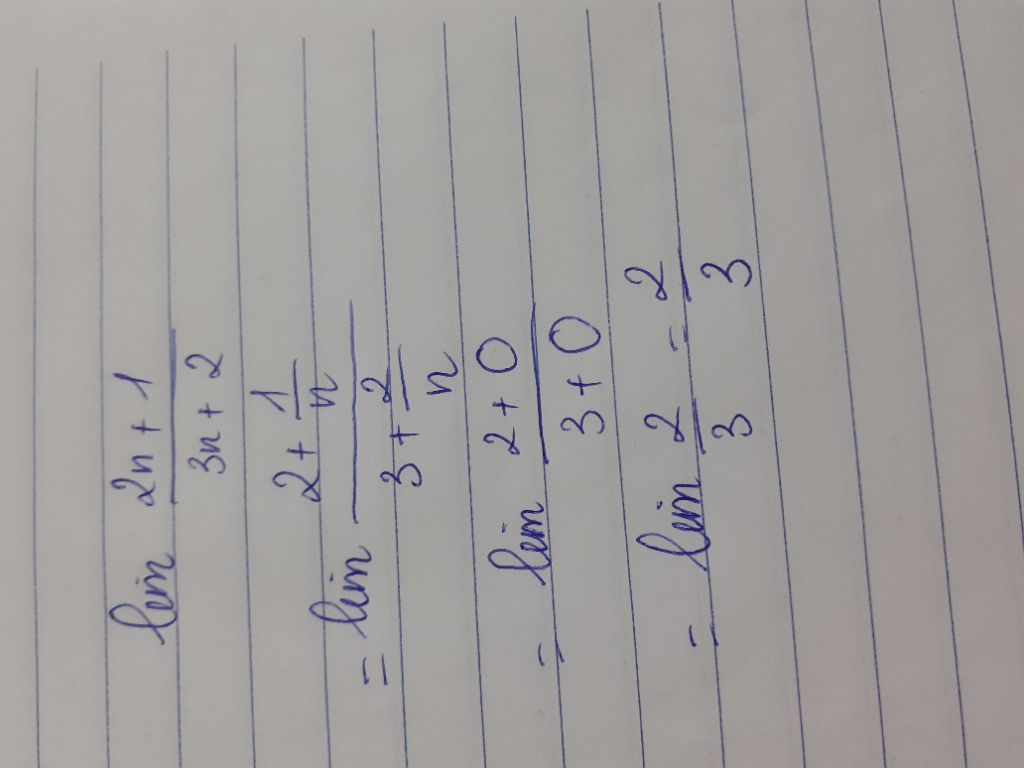 lim (2n + 1)/(3n + 2)
= lim (2 + 1/n)/(3 + 2/n)
= lim (2 + 0)/(3 + 0)
= lim 2/3 = 2/3